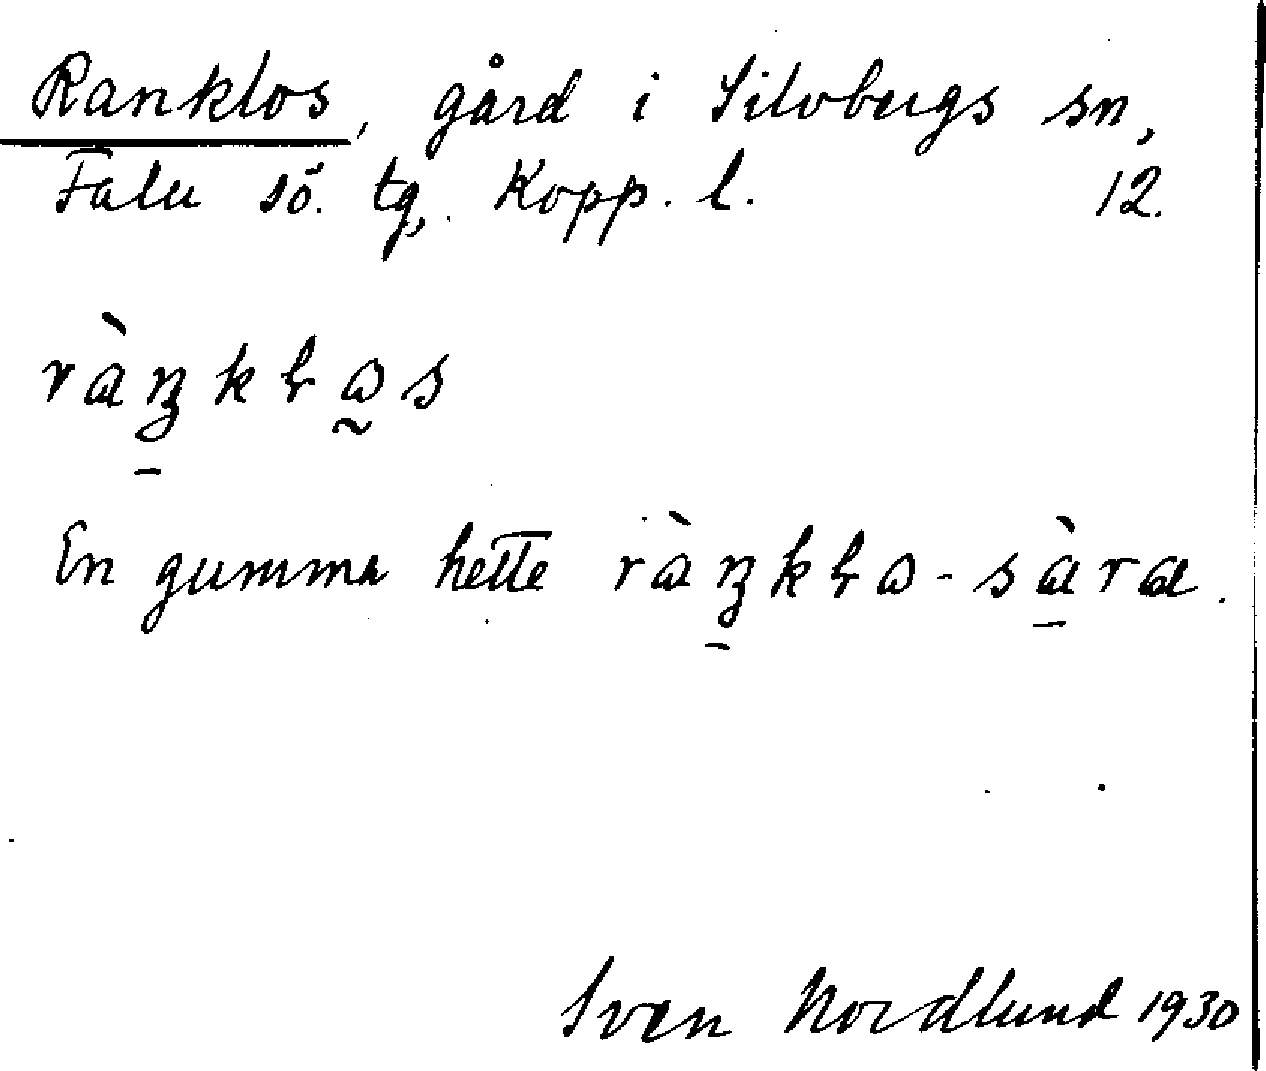 Ranklos, gård i Silvbergs sn,
Falu sö. tg, Kopp. l. 12.
ràŋkɭɷs
En gumma hette ràŋkɭɷ-sàra.
Sven Nordlund 1930